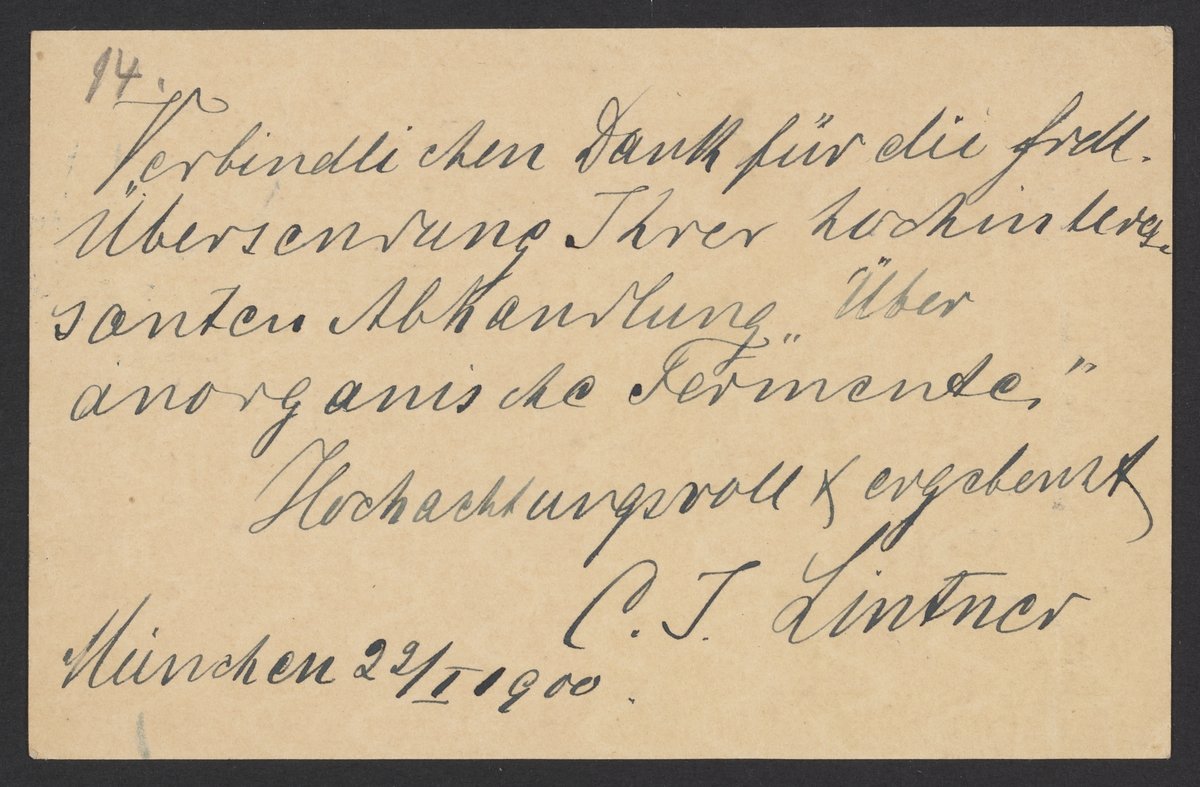 14.
Verbindlichen Dank für die frdl.
Übersendung Ihrer hochinteres-
santen Abhandlung „Über
anorganische Fermente."
Hochachtungsvoll & ergebenst
C. J. Lintner
München 22/I 1900.